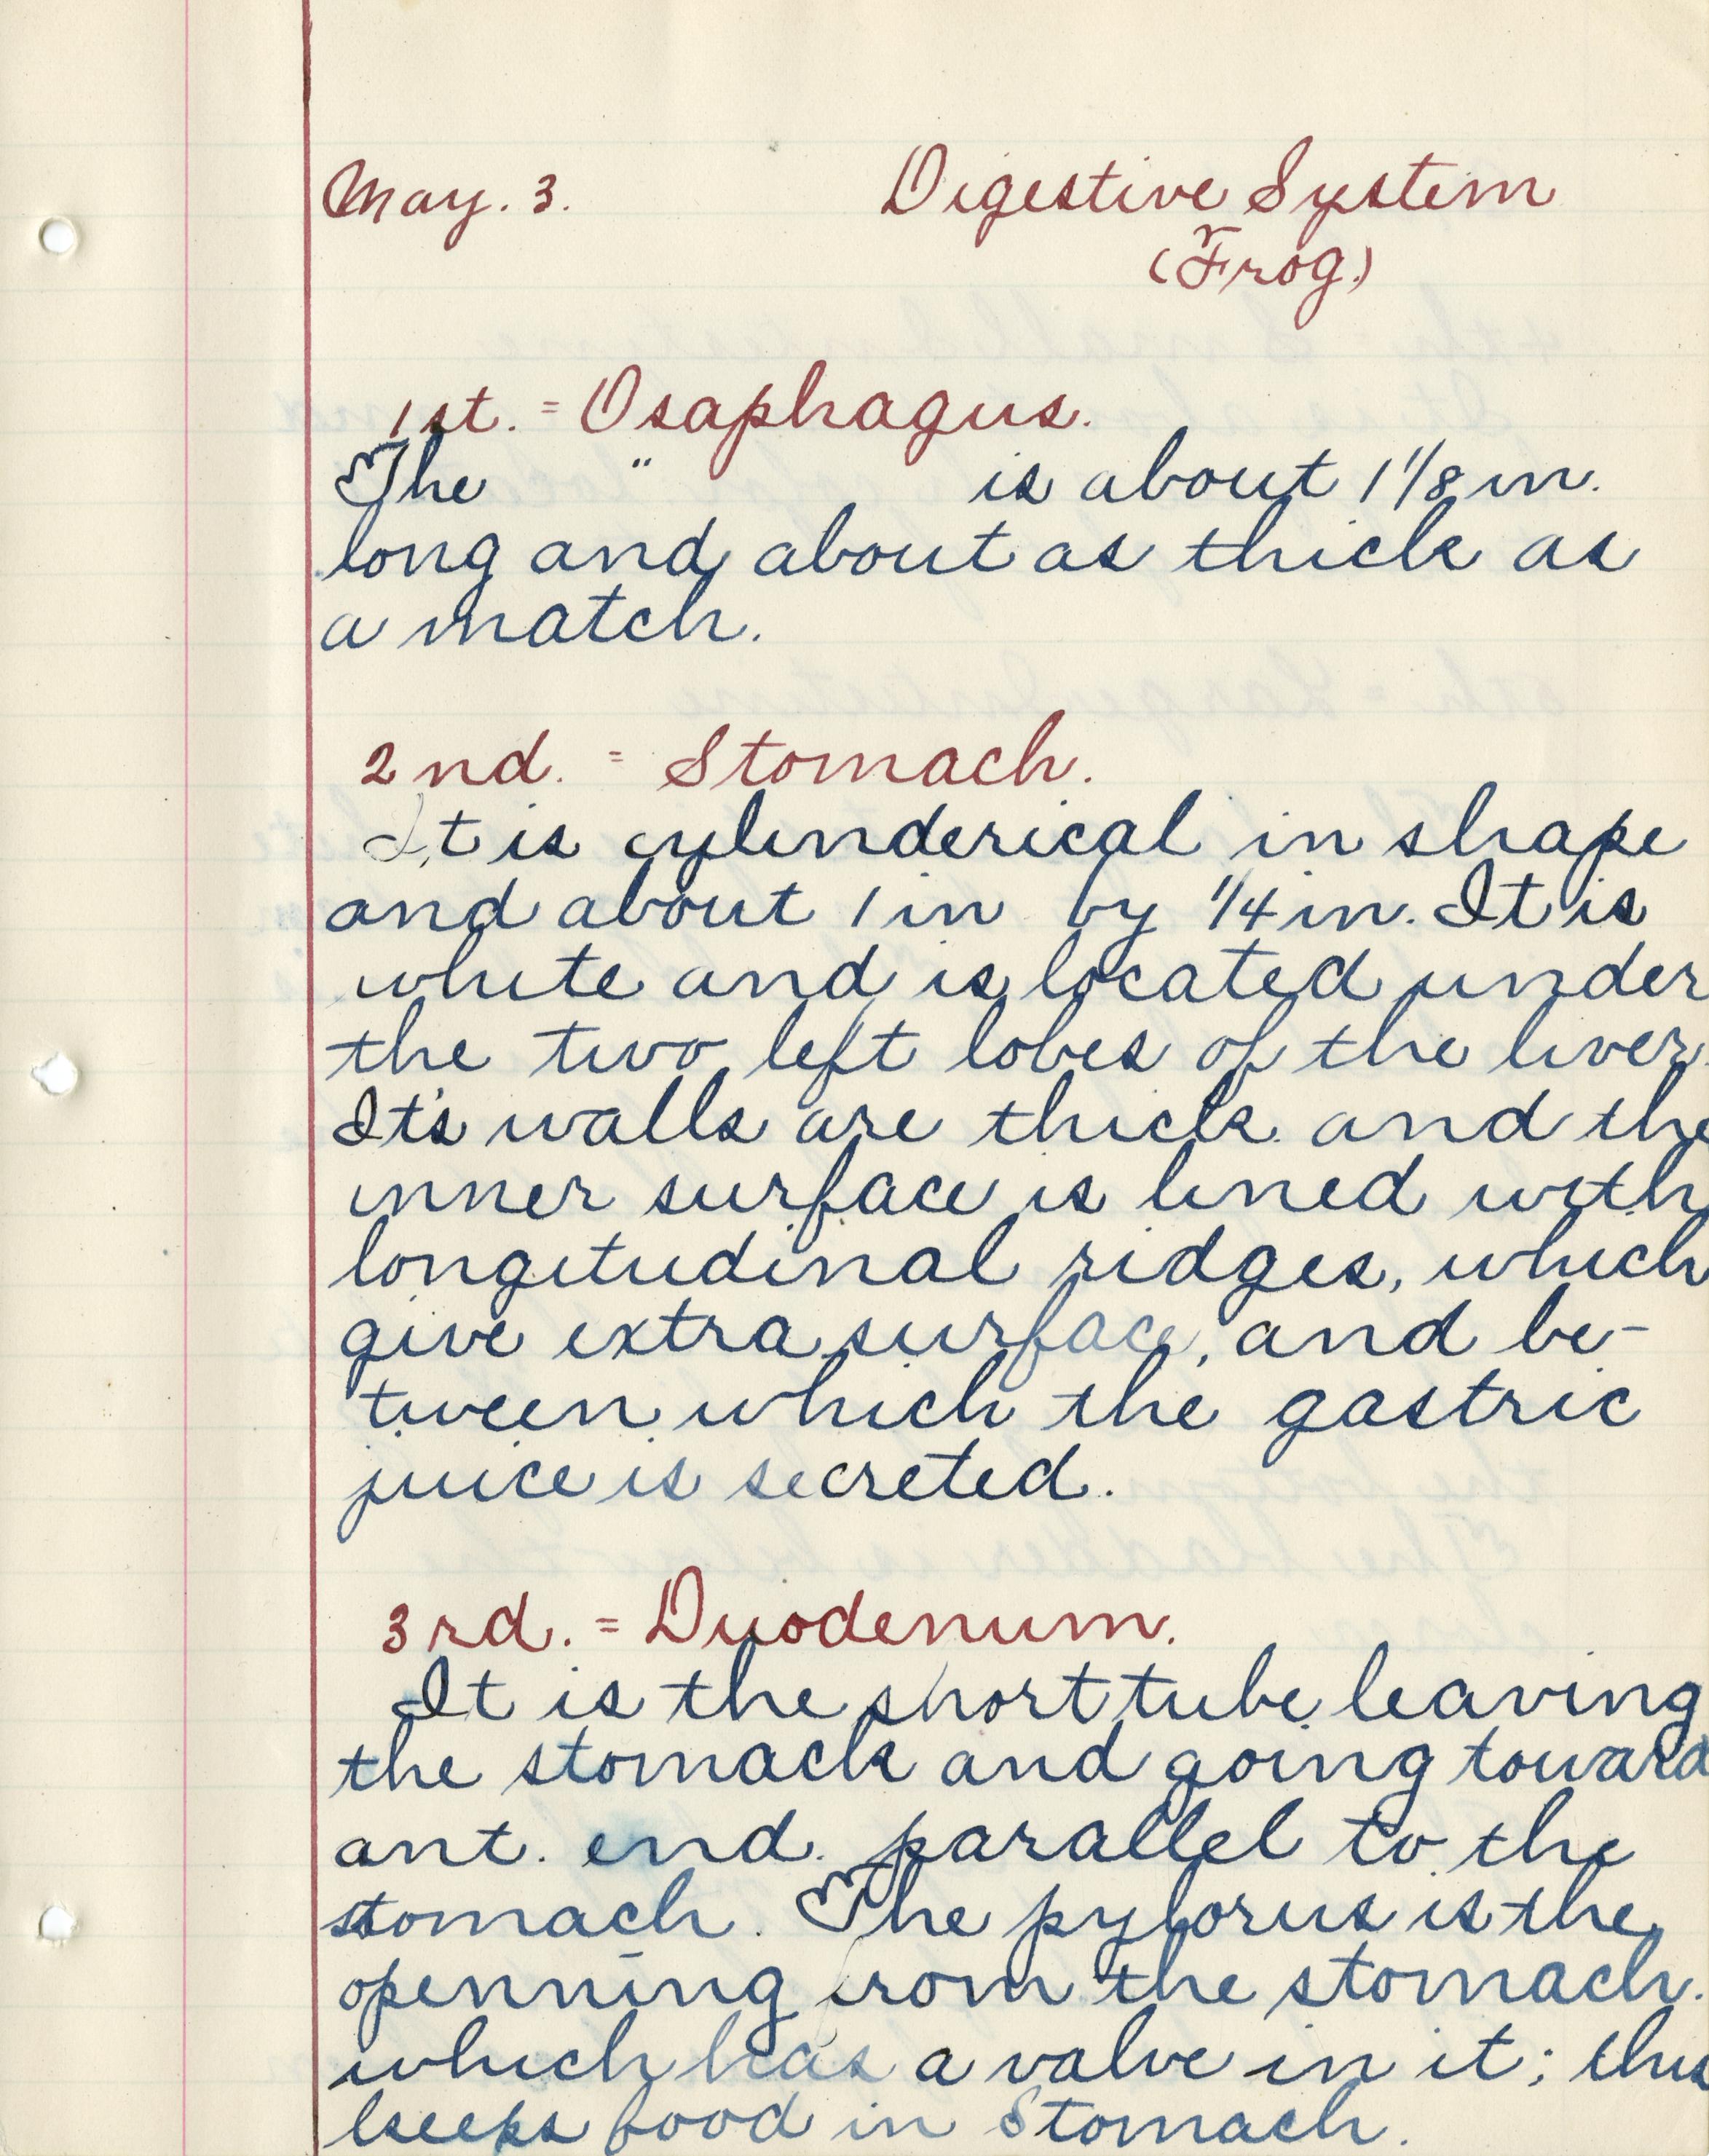 May. 3. Digestive System
(Frog)
1st. = Osaphagus.
The " is about 1 1/8 in.
long and about as thick as
a match.
2nd. = Stomach.
It is cylinderical in shape
and about 1 in by 1/4 in. It is
white and is located under
the two left lobes of the liver.
It's walls are thick and the
inner surface is lined with
longitudinal ridges, which
give extra surface, and be-
tween which the gastric
juice is secreted.
3rd. = Duodenum.
It is the short tube leaving
the stomach and going toward
ant. end. parallel to the
stomach. The pylorus is the
openning from the stomach.
which has a valve in it; this
keeps food in Stomach.